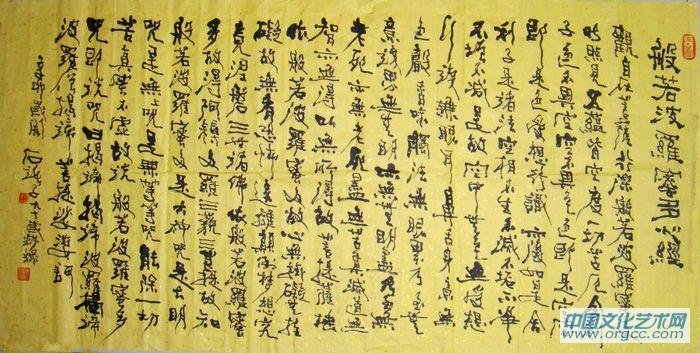 般若波羅蜜多心經
觀自在菩薩行深般若波羅蜜多
時照見五蘊皆空度一切苦厄舍利
子色不異空空不異色色即是空空
即是色受想行識亦復如是舍
利子是諸法空相不生不滅不垢不淨
不增不減是故空中無色無受想
行識無眼耳鼻舌身意無
色聲香味觸法無眼界乃至無
意識界無無明亦無無明盡乃至無
老死亦無老死盡無苦集滅道無
智亦無得以無所得故菩提薩埵
依般若波羅蜜多故心無罣礙無罣
礙故無有恐怖遠離顛倒夢想究
竟涅槃三世諸佛依般若波羅蜜
多故得阿耨多羅三藐三菩提故知
般若波羅蜜多是大神咒是大明
咒是無上咒是無等等咒能除一切
苦真實不虛故說般若波羅蜜多
咒即說咒曰揭諦揭諦波羅揭諦
波羅僧揭諦菩提薩婆訶
中国文化艺术网
www.orgcc.com